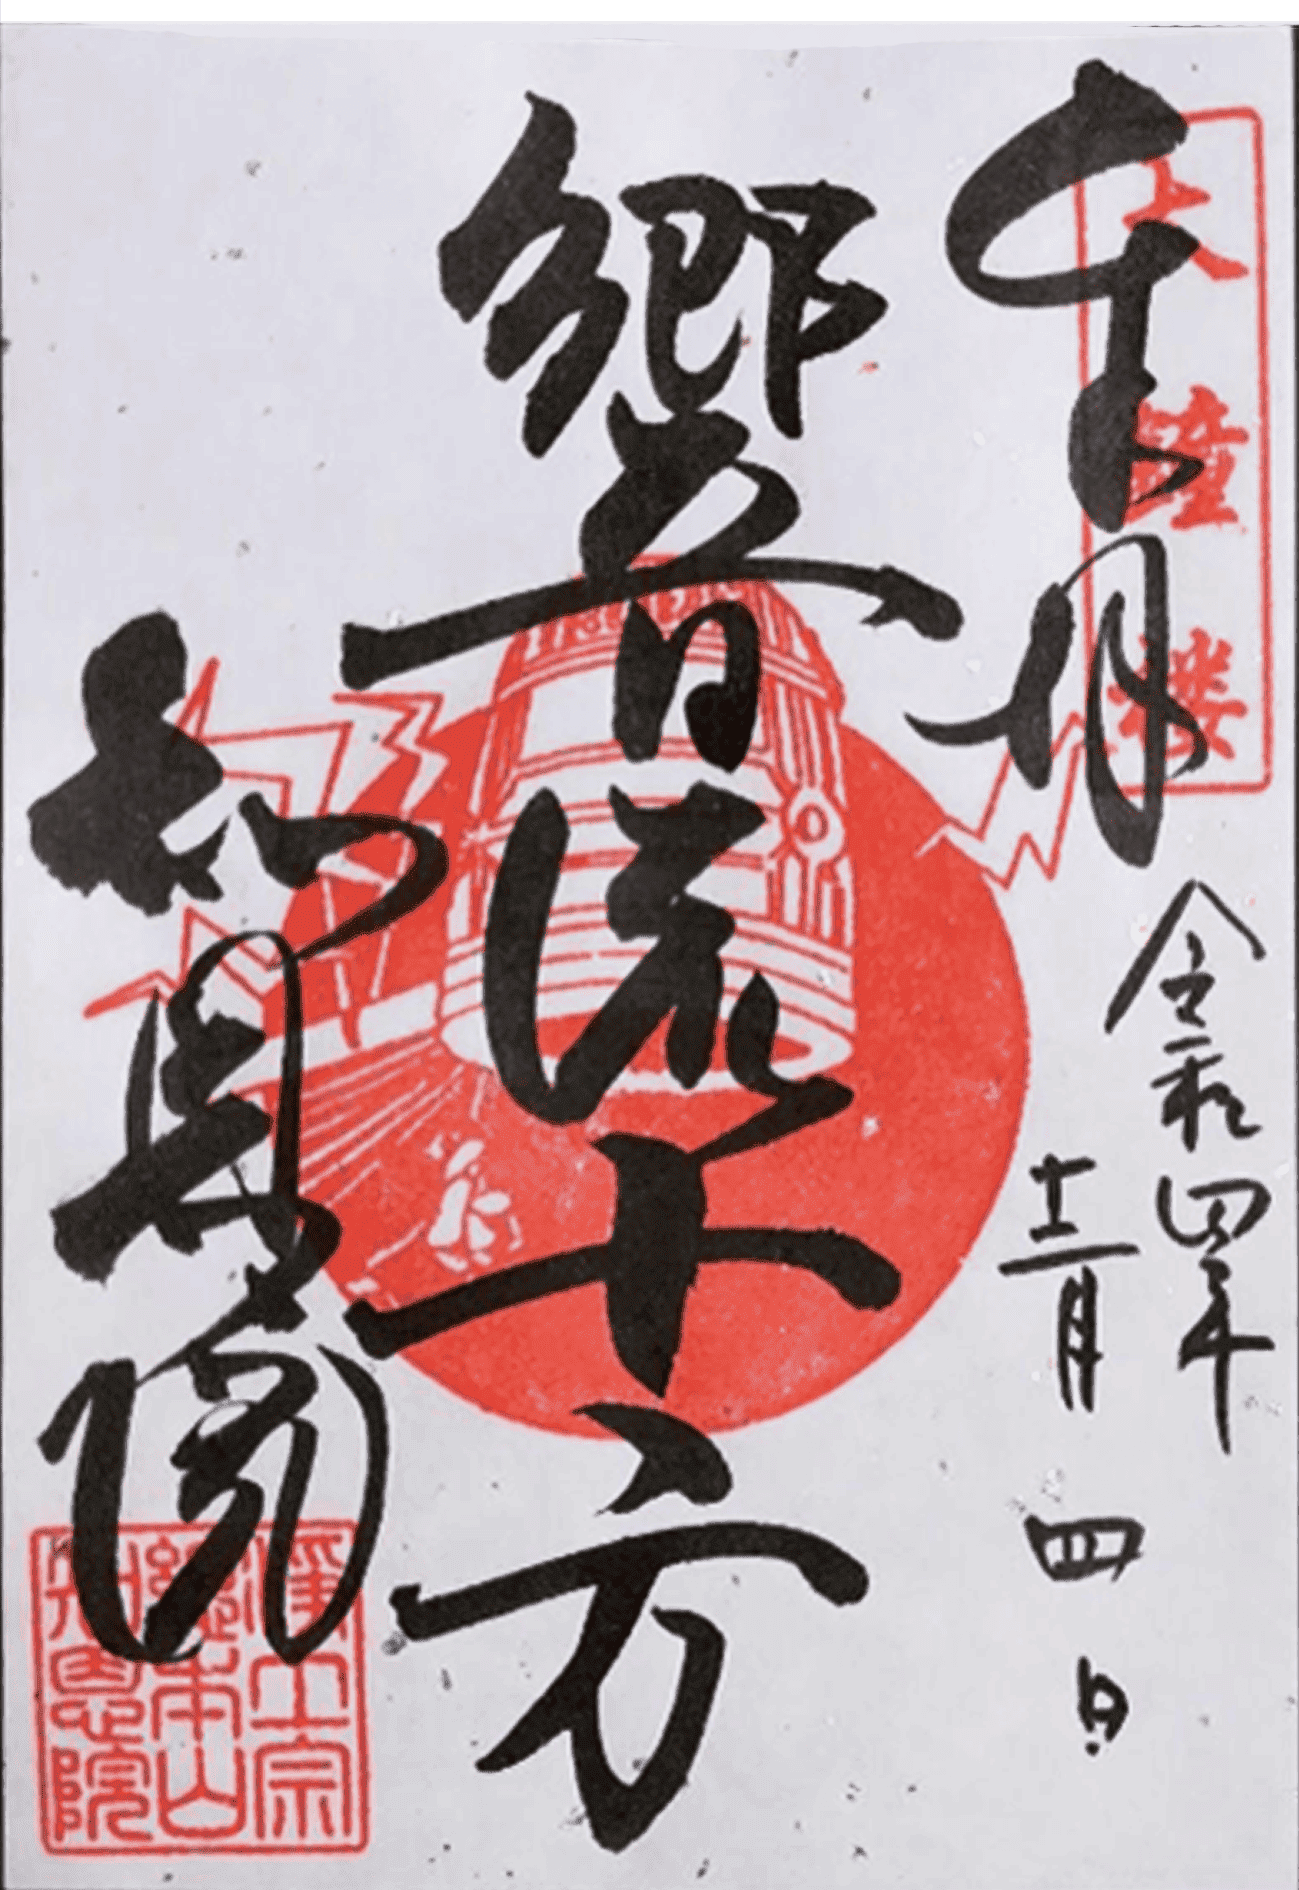 奉拝
大鐘楼
令和四年
十二月四日
響流十方
知恩院
浄土宗
總本山
知恩院